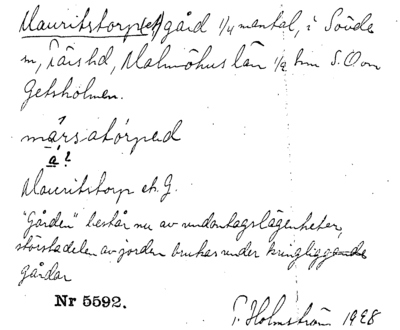 Mauritstorp(et) gård 1/4 mantal, i Sövde
sn, Färs hd, Malmöhus län 1/2 km S.O om
Getsholmen.
mårsatórpəd
á?
Mauritstorp ek. G.
"Gården" består nu av undantagslägenheter,
största delen av jorden brukas under kringliggande
gårdar
Nr 5592.
T. Holmström 1928